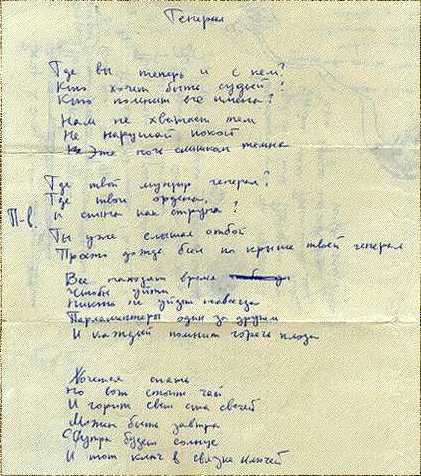 Генерал
Где вы теперь и с кем?
Кто хочет быть судьей?
Кто помнит все имена?
Нам не хватает тем
Не нарушай покой
Эта ночь слишком темна
Где твой мундир генерал?
Где твои ордена,
П-в. и спина как струна?
Ты уже слышал отбой
Просто дождь бил по крыше твоей генерал
Все находят время
Чтобы уйти
Никто не уйдет навсегда
Парламентеры один за другим
И каждый помнит горечь плода
Хочется спать
Но вот стоит чай
И горит свет ста свечей
Может быть завтра
С утра будет солнце
И тот ключ в связке ключей